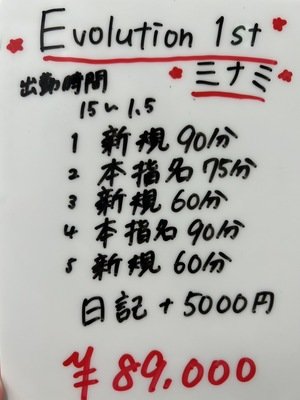 Evolution 1st
ミナミ
出勤時間
15〜1.5
1 新規 90分
2 本指名 75分
3 新規 60分
4 本指名 90分
5 新規 60分
日記 + 5000円
¥89.000